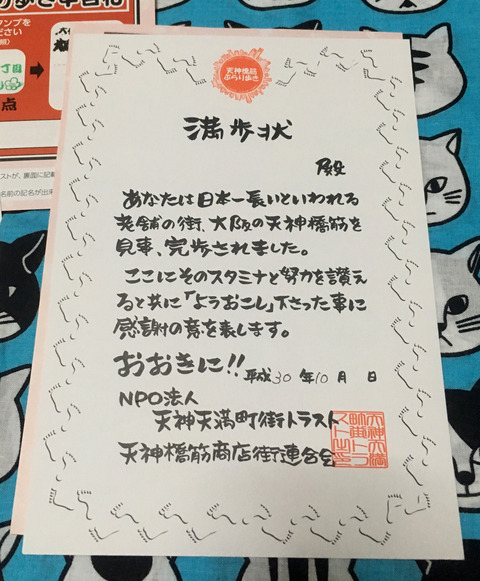 タンプを
ださい
丁目
点
天神橋筋
ぶらり歩き
満歩状
殿
あなたは日本一長いといわれる
老舗の街、大阪の天神橋筋を
見事、完歩されました。
ここにそのスタミナと努力を讃え
ると共に「ようおこし」下さった事に
感謝の意を表します。
おおきに!! 平成30年10月 日
NPO法人
天神天満町街トラスト
天神橋筋商店街連合会